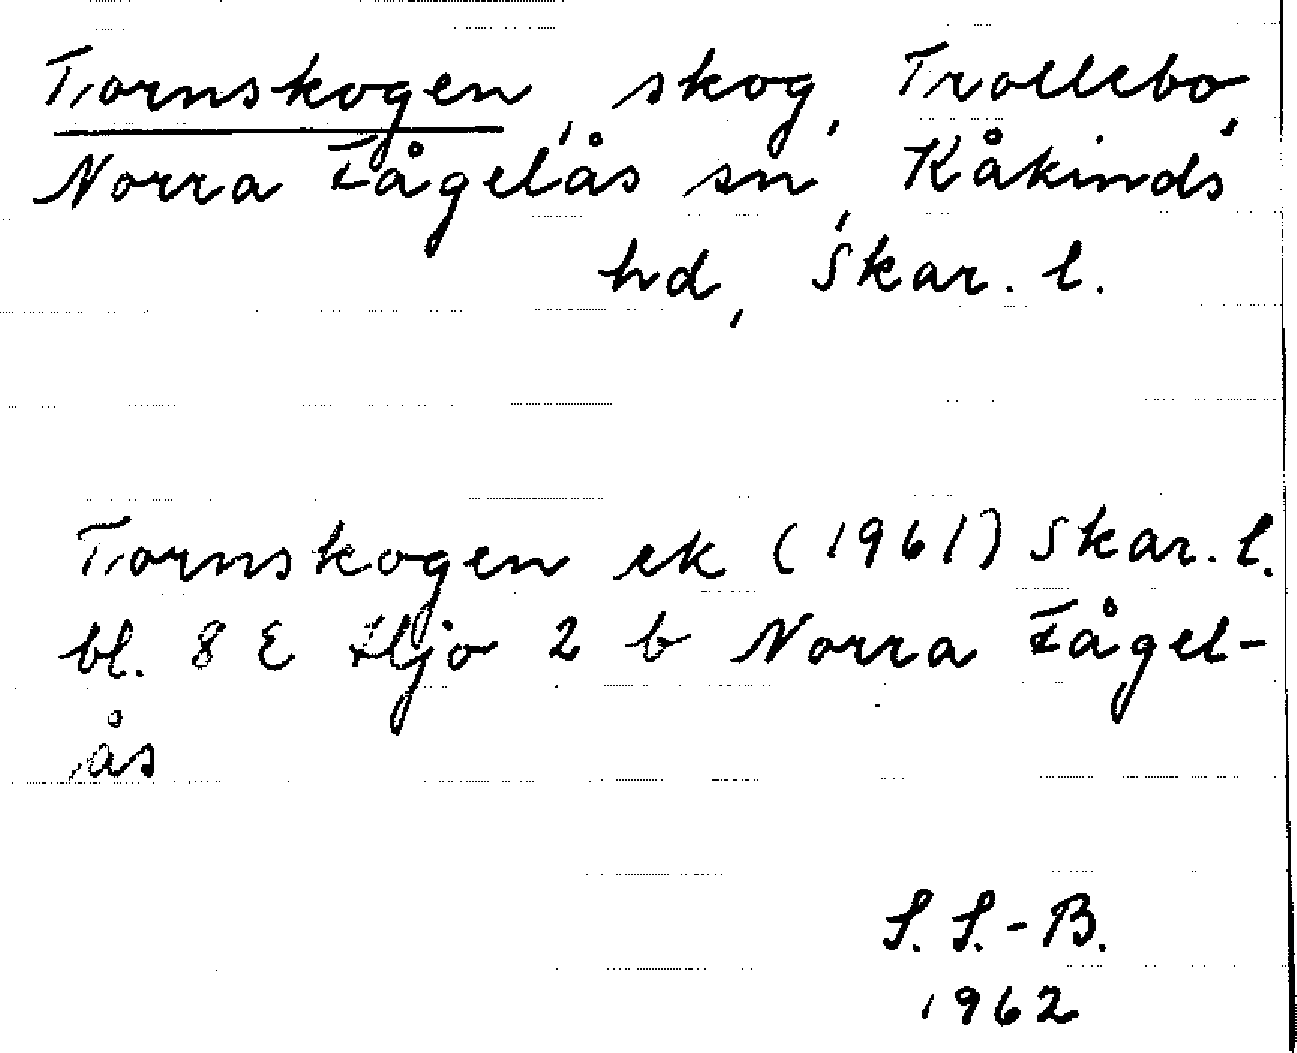 Tornskogen, skog, Trollebo,
Norra Fågelås sn, Kåkinds
hd, Skar. l.
Tornskogen ek (1961) Skar. l.
bl. 8 E Hjo 2 b Norra Fågel-
ås
S. S.-B.
1962